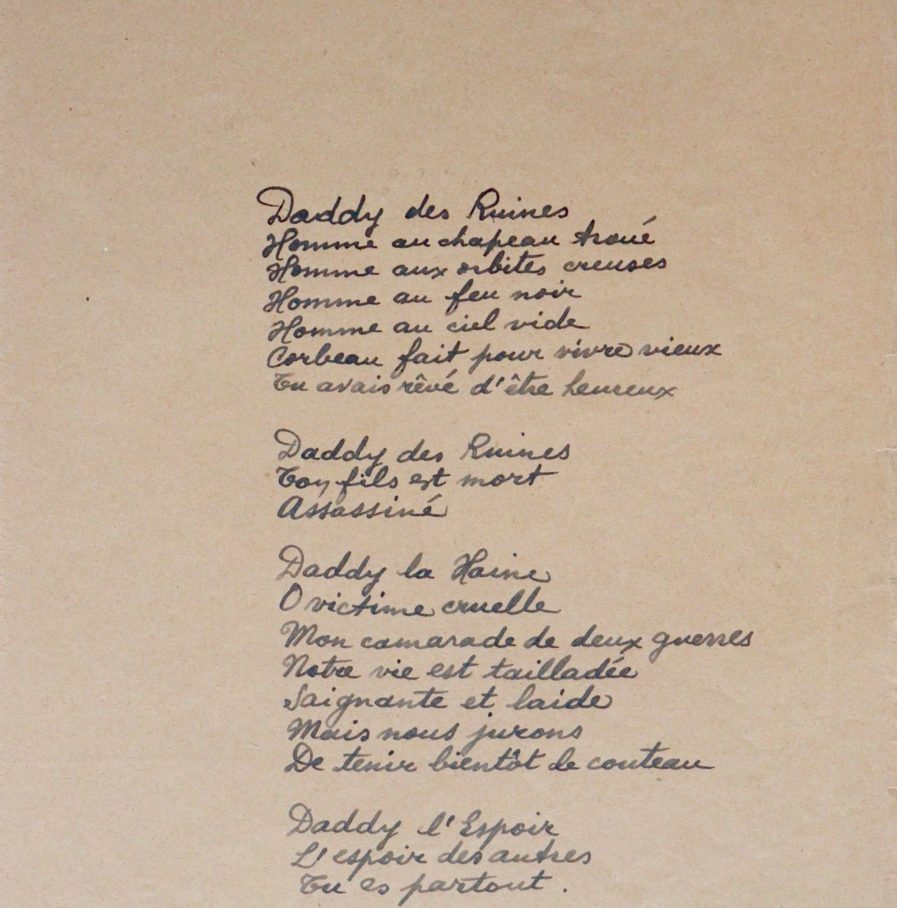 Daddy des Ruines
Homme au chapeau troué
Homme aux orbites creuses
Homme au feu noir
Homme au ciel vide
Corbeau fait pour vivre vieux
Tu avais rêvé d'être heureux

Daddy des Ruines
Ton fils est mort
Assassiné

Daddy la Haine
O victime cruelle
Mon camarade de deux guerres
Notre vie est tailladée
Saignante et laide
Mais nous jurons
De tenir bientôt le couteau

Daddy l'Espoir
L'espoir des autres
Tu es partout.